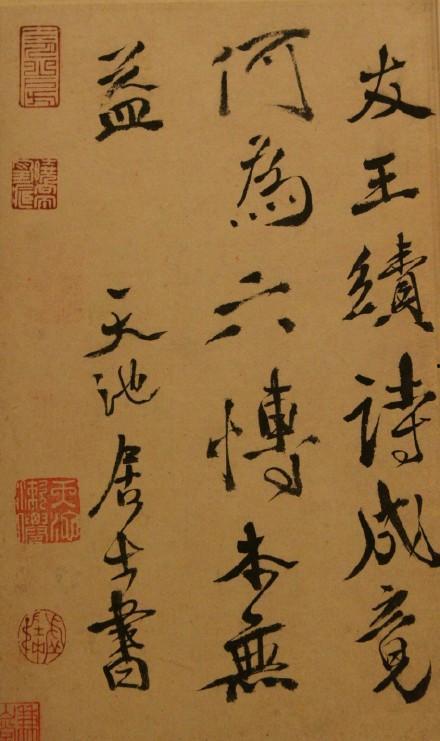 友王續詩成竟
何為六博本無
益 天池居士書